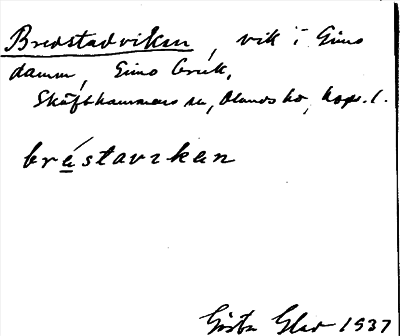 Bredstadviken, vik i Gimo
damm, Gimo bruk,
Skäfthammars sn, Olands hd, Uppl.
brástavikan
Gösta Glad 1937